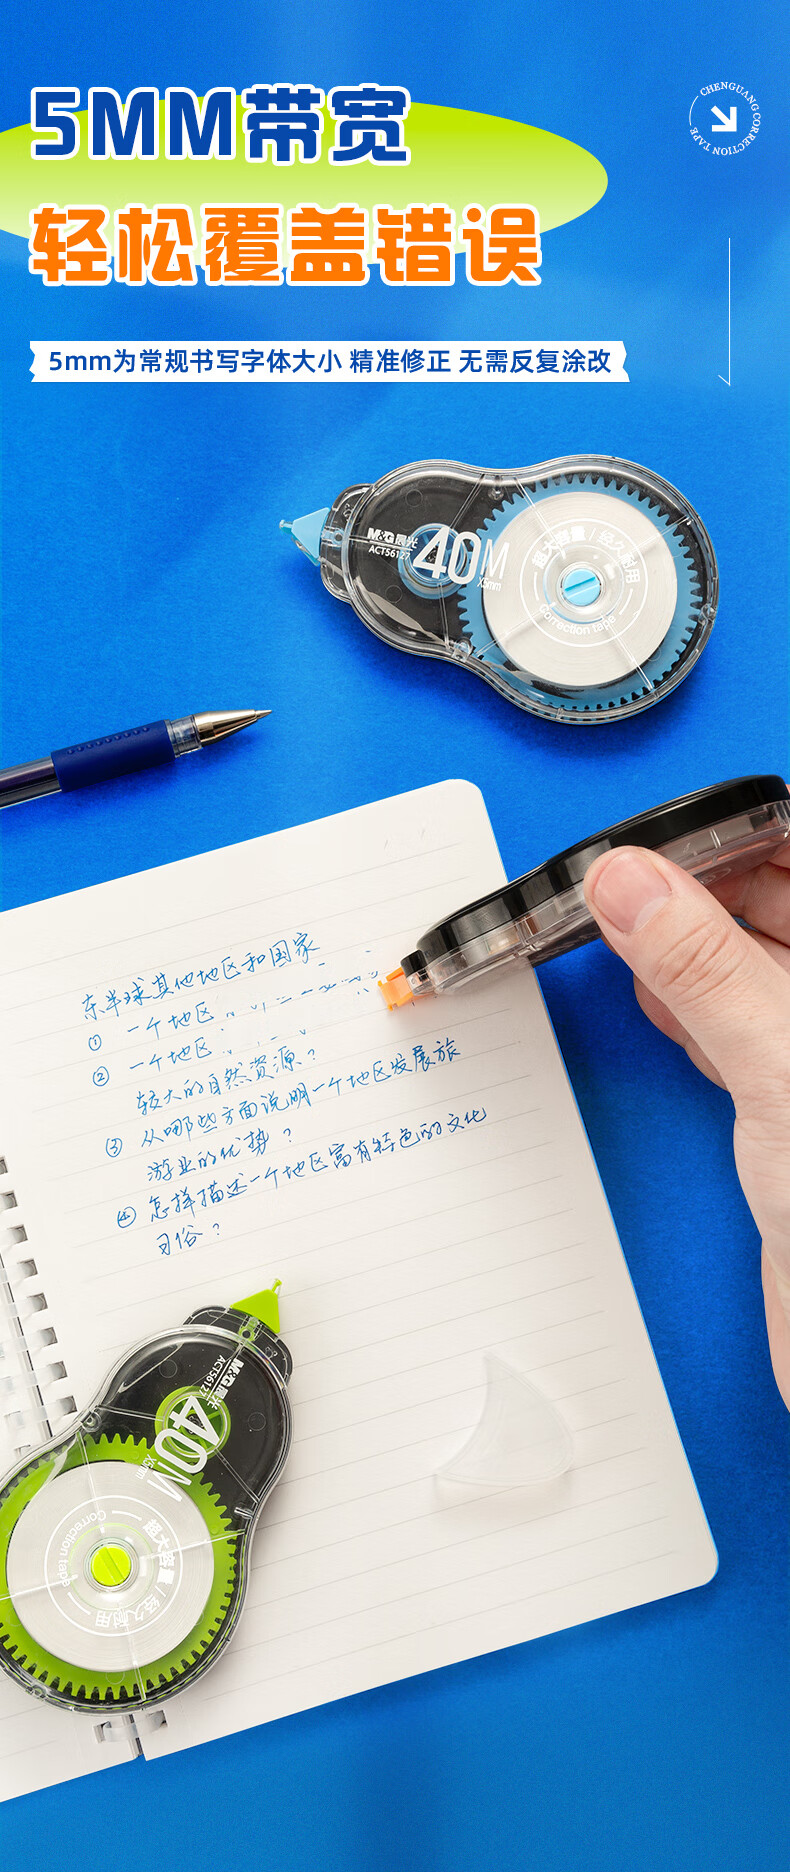 5MM带宽
轻松覆盖错误
CHENGUANG CORRECTION TAPE
5mm为常规书写字体大小 精准修正 无需反复涂改
M&G晨光
ACT56127
40M
X5mm
超大容量 / 经久耐用
Correction tape
东半球其他地区和国家
① 一个地区
② 一个地区
较大的自然资源？
③ 从哪些方面说明一个地区发展旅
游业的优势？
④ 怎样描述一个地区富有特色的文化
习俗？
M&G晨光
ACT56127
40M
X5mm
超大容量 / 经久耐用
Correction tape